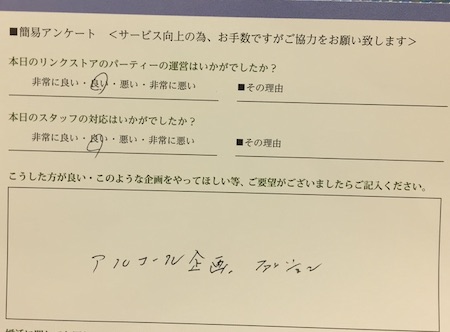 ■簡易アンケート ＜サービス向上の為、お手数ですがご協力をお願い致します＞
本日のリンクストアのパーティーの運営はいかがでしたか？
非常に良い・良い・悪い・非常に悪い ■その理由
本日のスタッフの対応はいかがでしたか？
非常に良い・良い・悪い・非常に悪い ■その理由
こうした方が良い・このような企画をやってほしい等、ご要望がございましたらご記入ください。
アルコール企画、